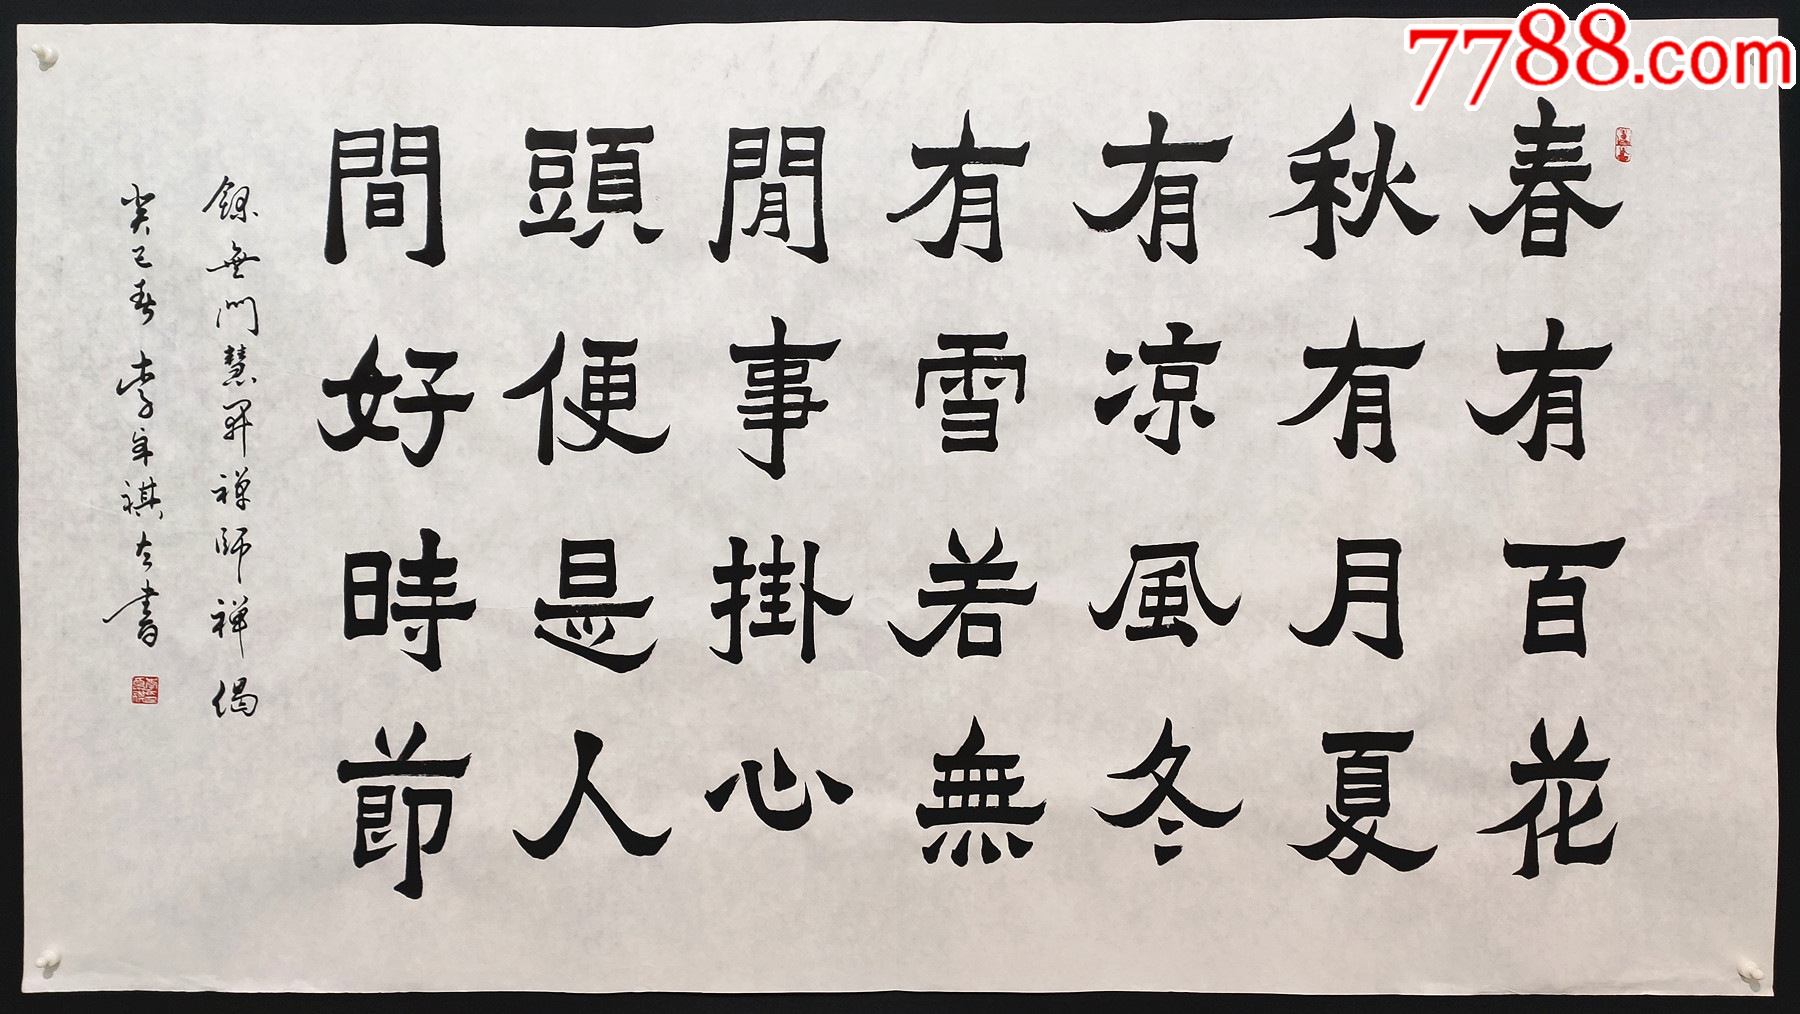 7788.com
春有百花
秋有月夏
有凉風冬
有雪若無
閒事掛心
頭便是人
間好時節
錄無門慧開禪師禪偈
癸巳春李年祺書